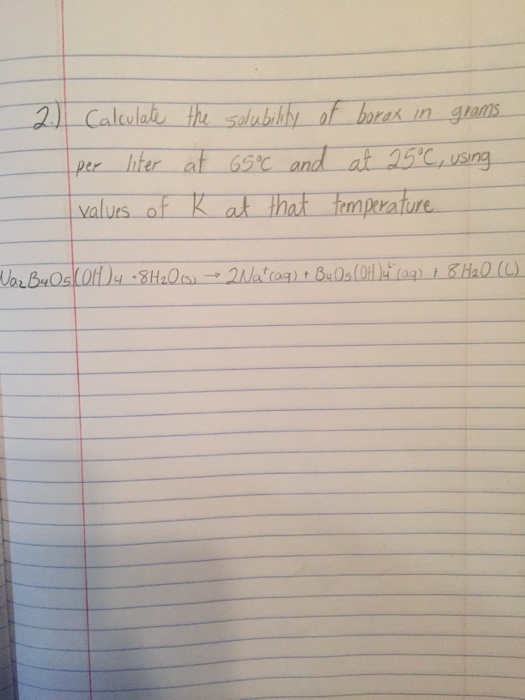 2.) Calculate the solubility of borax in grams
per liter at 65°C and at 25°C, using
values of K at that temperature.
Na2B4O5(OH)4 · 8H2O(s) → 2Na+(aq) + B4O5(OH)4²⁻(aq) + 8H2O(l)